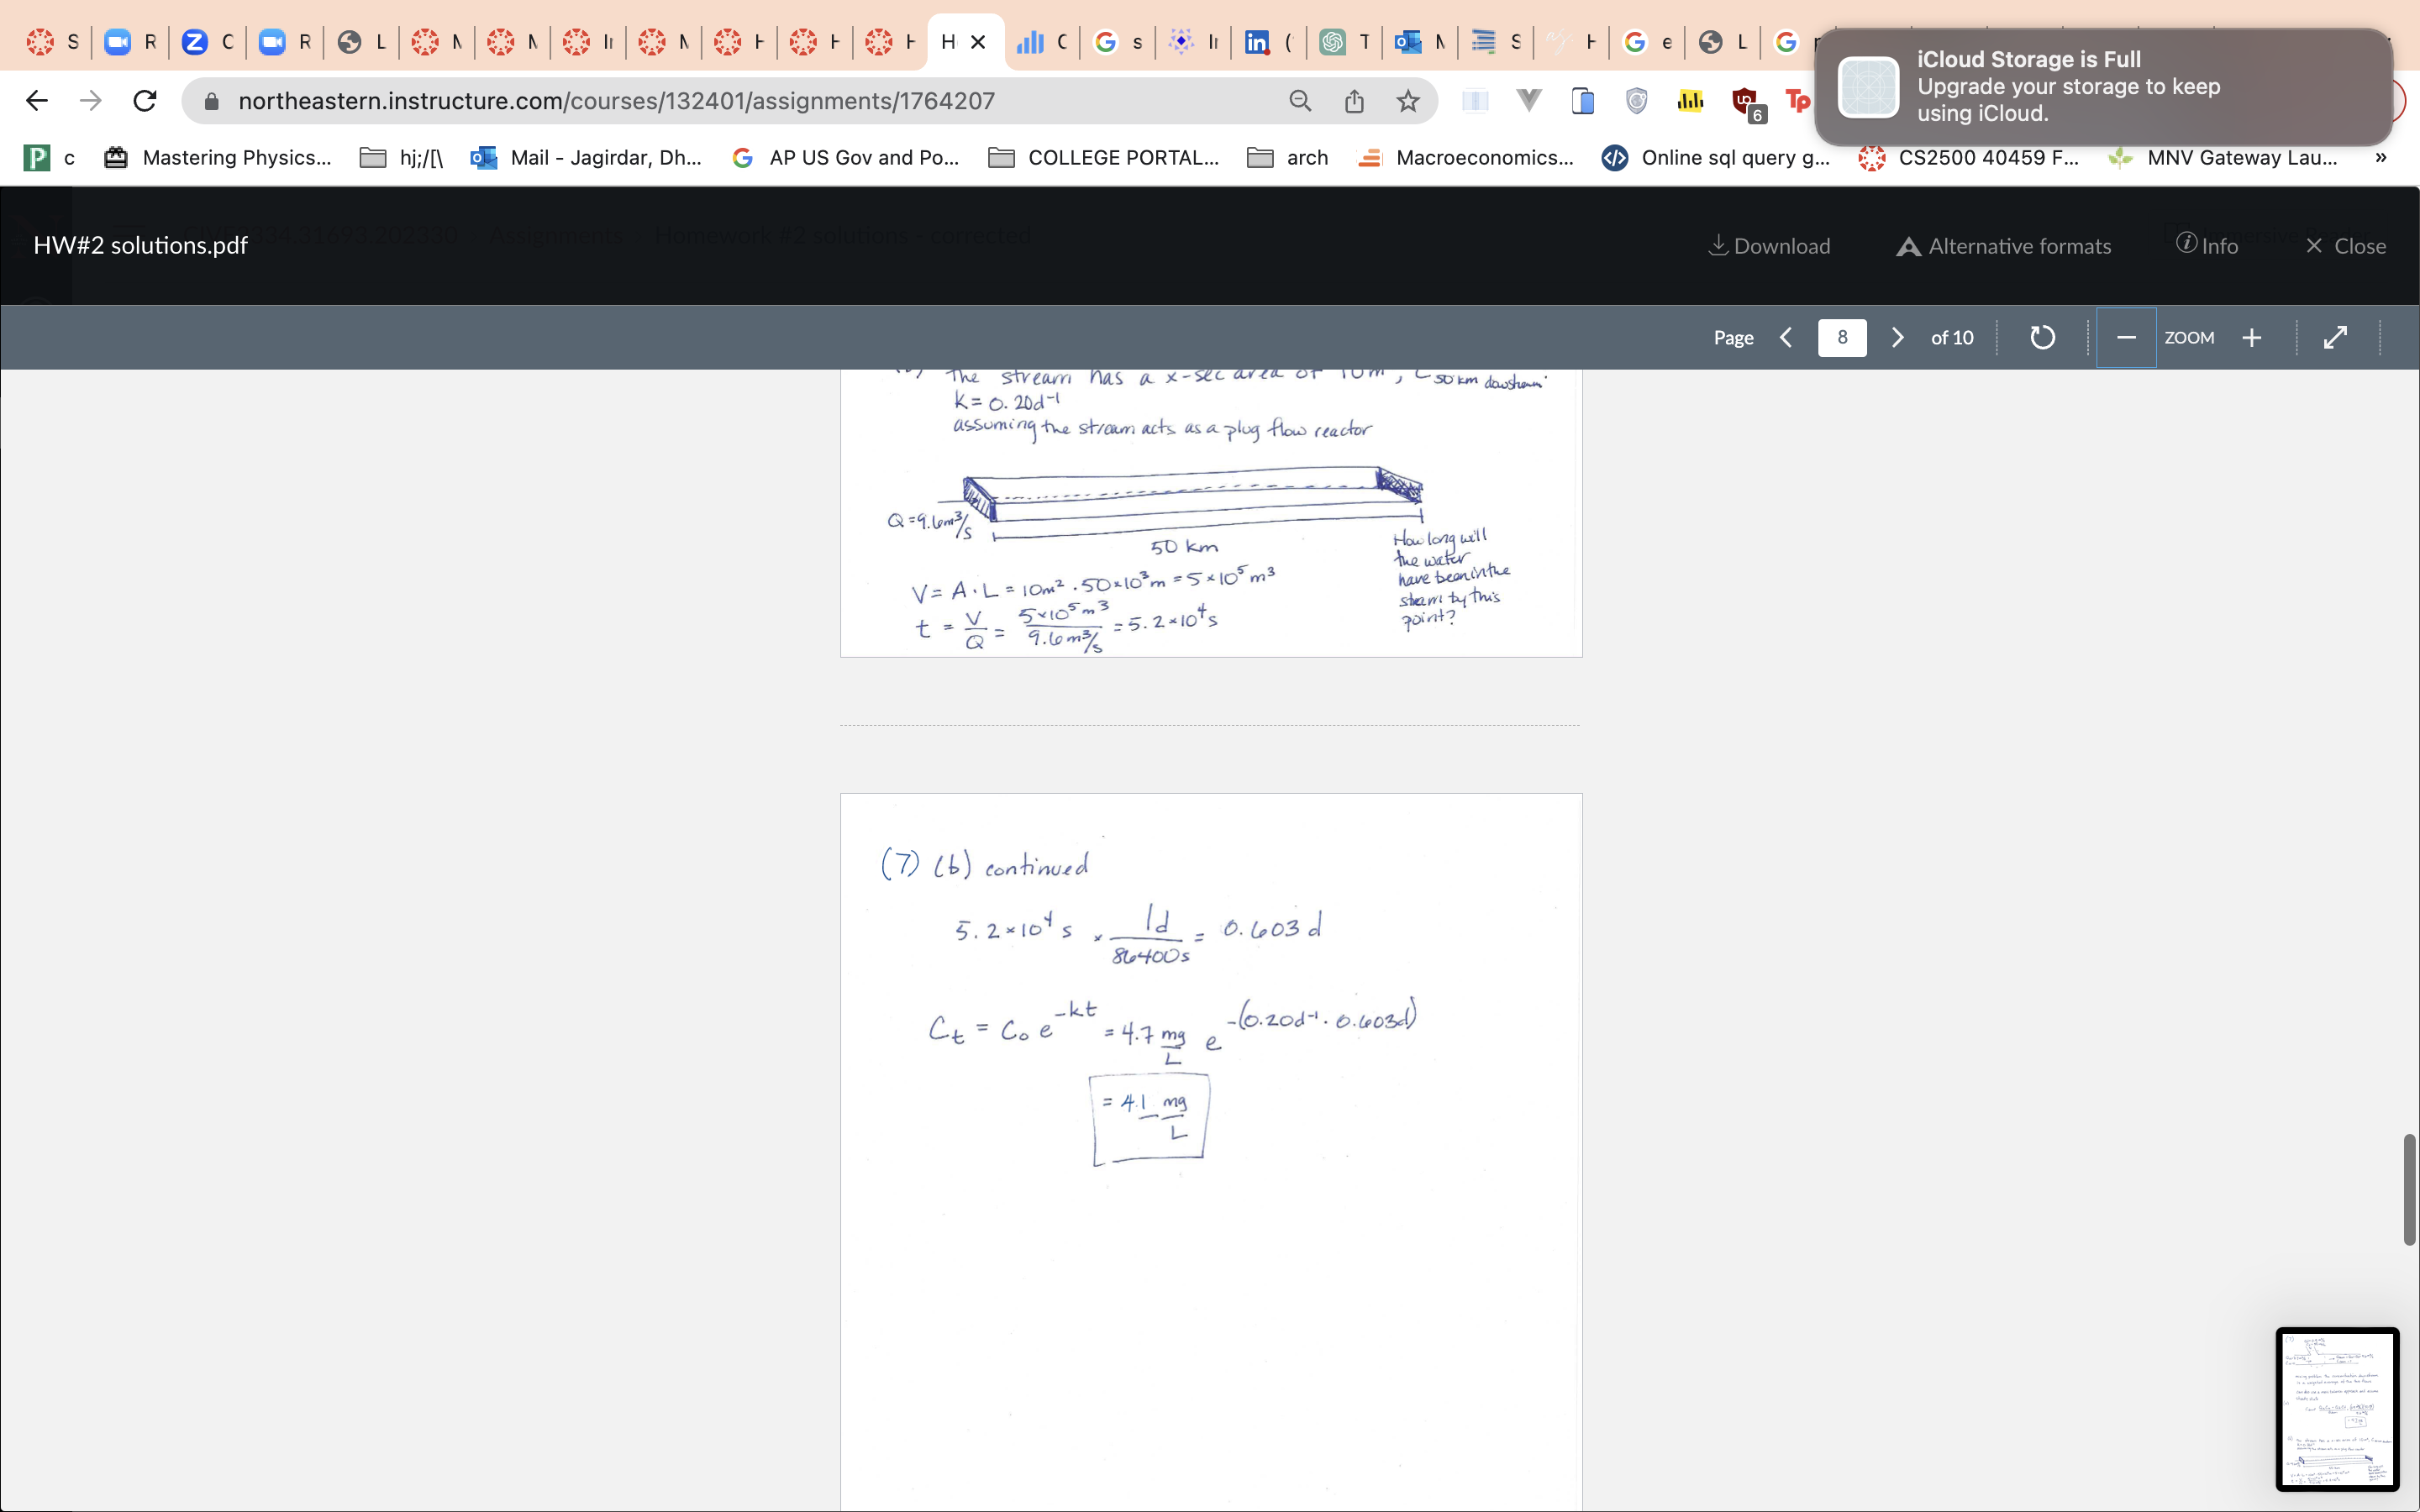 S R C R L
H C G s in T N S e L
iCloud Storage is Full
Upgrade your storage to keep
using iCloud.
northeastern.instructure.com/courses/132401/assignments/1764207
6 Tp
P c Mastering Physics... hj;/[\ Mail - Jagirdar, Dh... AP US Gov and Po... COLLEGE PORTAL... arch Macroeconomics... Online sql query g... CS2500 40459 F... MNV Gateway Lau... »
HW#2 solutions.pdf Download Alternative formats Info Close
Page 8 of 10 ZOOM
the stream has a x-sec area of 10m², C 50 km downstream
K = 0.20d⁻¹
assuming the stream acts as a plug flow reactor
Q = 9.6m³/s
50 km
How long will
the water
have been in the
stream by this
point?
V = A · L = 10m² · 50×10³m = 5×10⁵m³
t = V/Q = 5×10⁵m³ / 9.6m³/s = 5.2×10⁴s
(7) (b) continued
5.2×10⁴ s × 1d / 86400s = 0.603 d
Ct = C₀ e^-kt = 4.7 mg/L e^-(0.20d⁻¹ · 0.603d)
= 4.1 mg/L